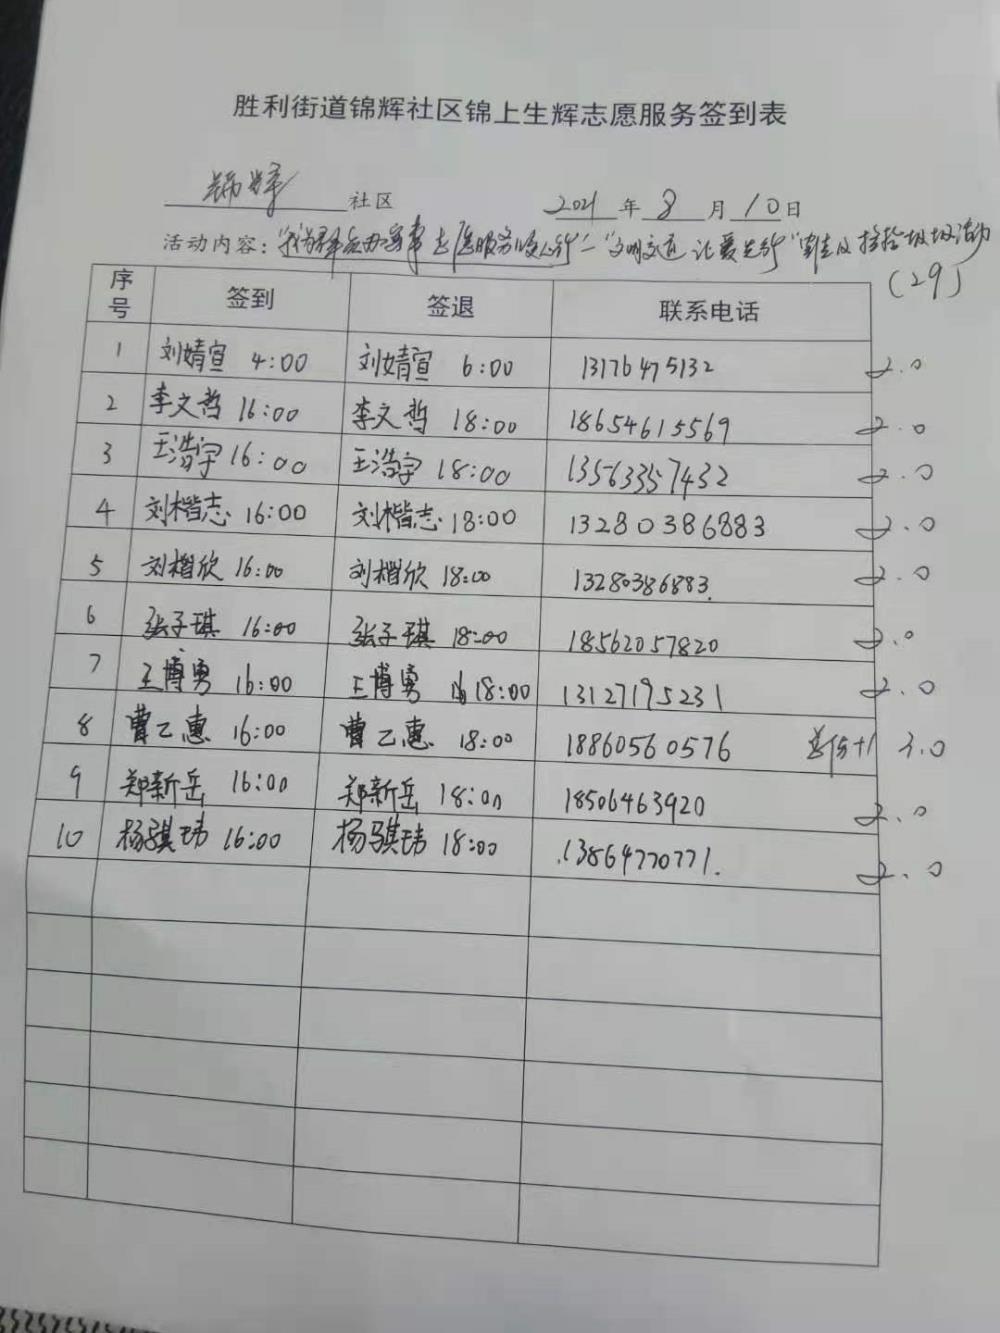 胜利街道锦辉社区锦上生辉志愿服务签到表
锦辉 社区 2021 年 8 月 10 日
活动内容："我为群众办实事 志愿服务暖人心行"—"文明交通 让爱先行" 捡拾垃圾活动
(29)
序号 签到 签退 联系电话
1 刘婧宣 4:00 刘婧宣 6:00 13176475132 2.0
2 李文哲 16:00 李文哲 18:00 18654615569 2.0
3 王浩宇 16:00 王浩宇 18:00 13563357432 2.0
4 刘楷志 16:00 刘楷志 18:00 13280386883 2.0
5 刘楷欣 16:00 刘楷欣 18:00 13280386883. 2.0
6 张子琪 16:00 张子琪 18:00 18562057820 2.0
7 王博勇 16:00 王博勇 18:00 13127195231 2.0
8 曹乙惠 16:00 曹乙惠 18:00 18860560576 +1 3.0
9 郑新岳 16:00 郑新岳 18:00 18506463920 2.0
10 杨骐玮 16:00 杨骐玮 18:00 .13864770771. 2.0